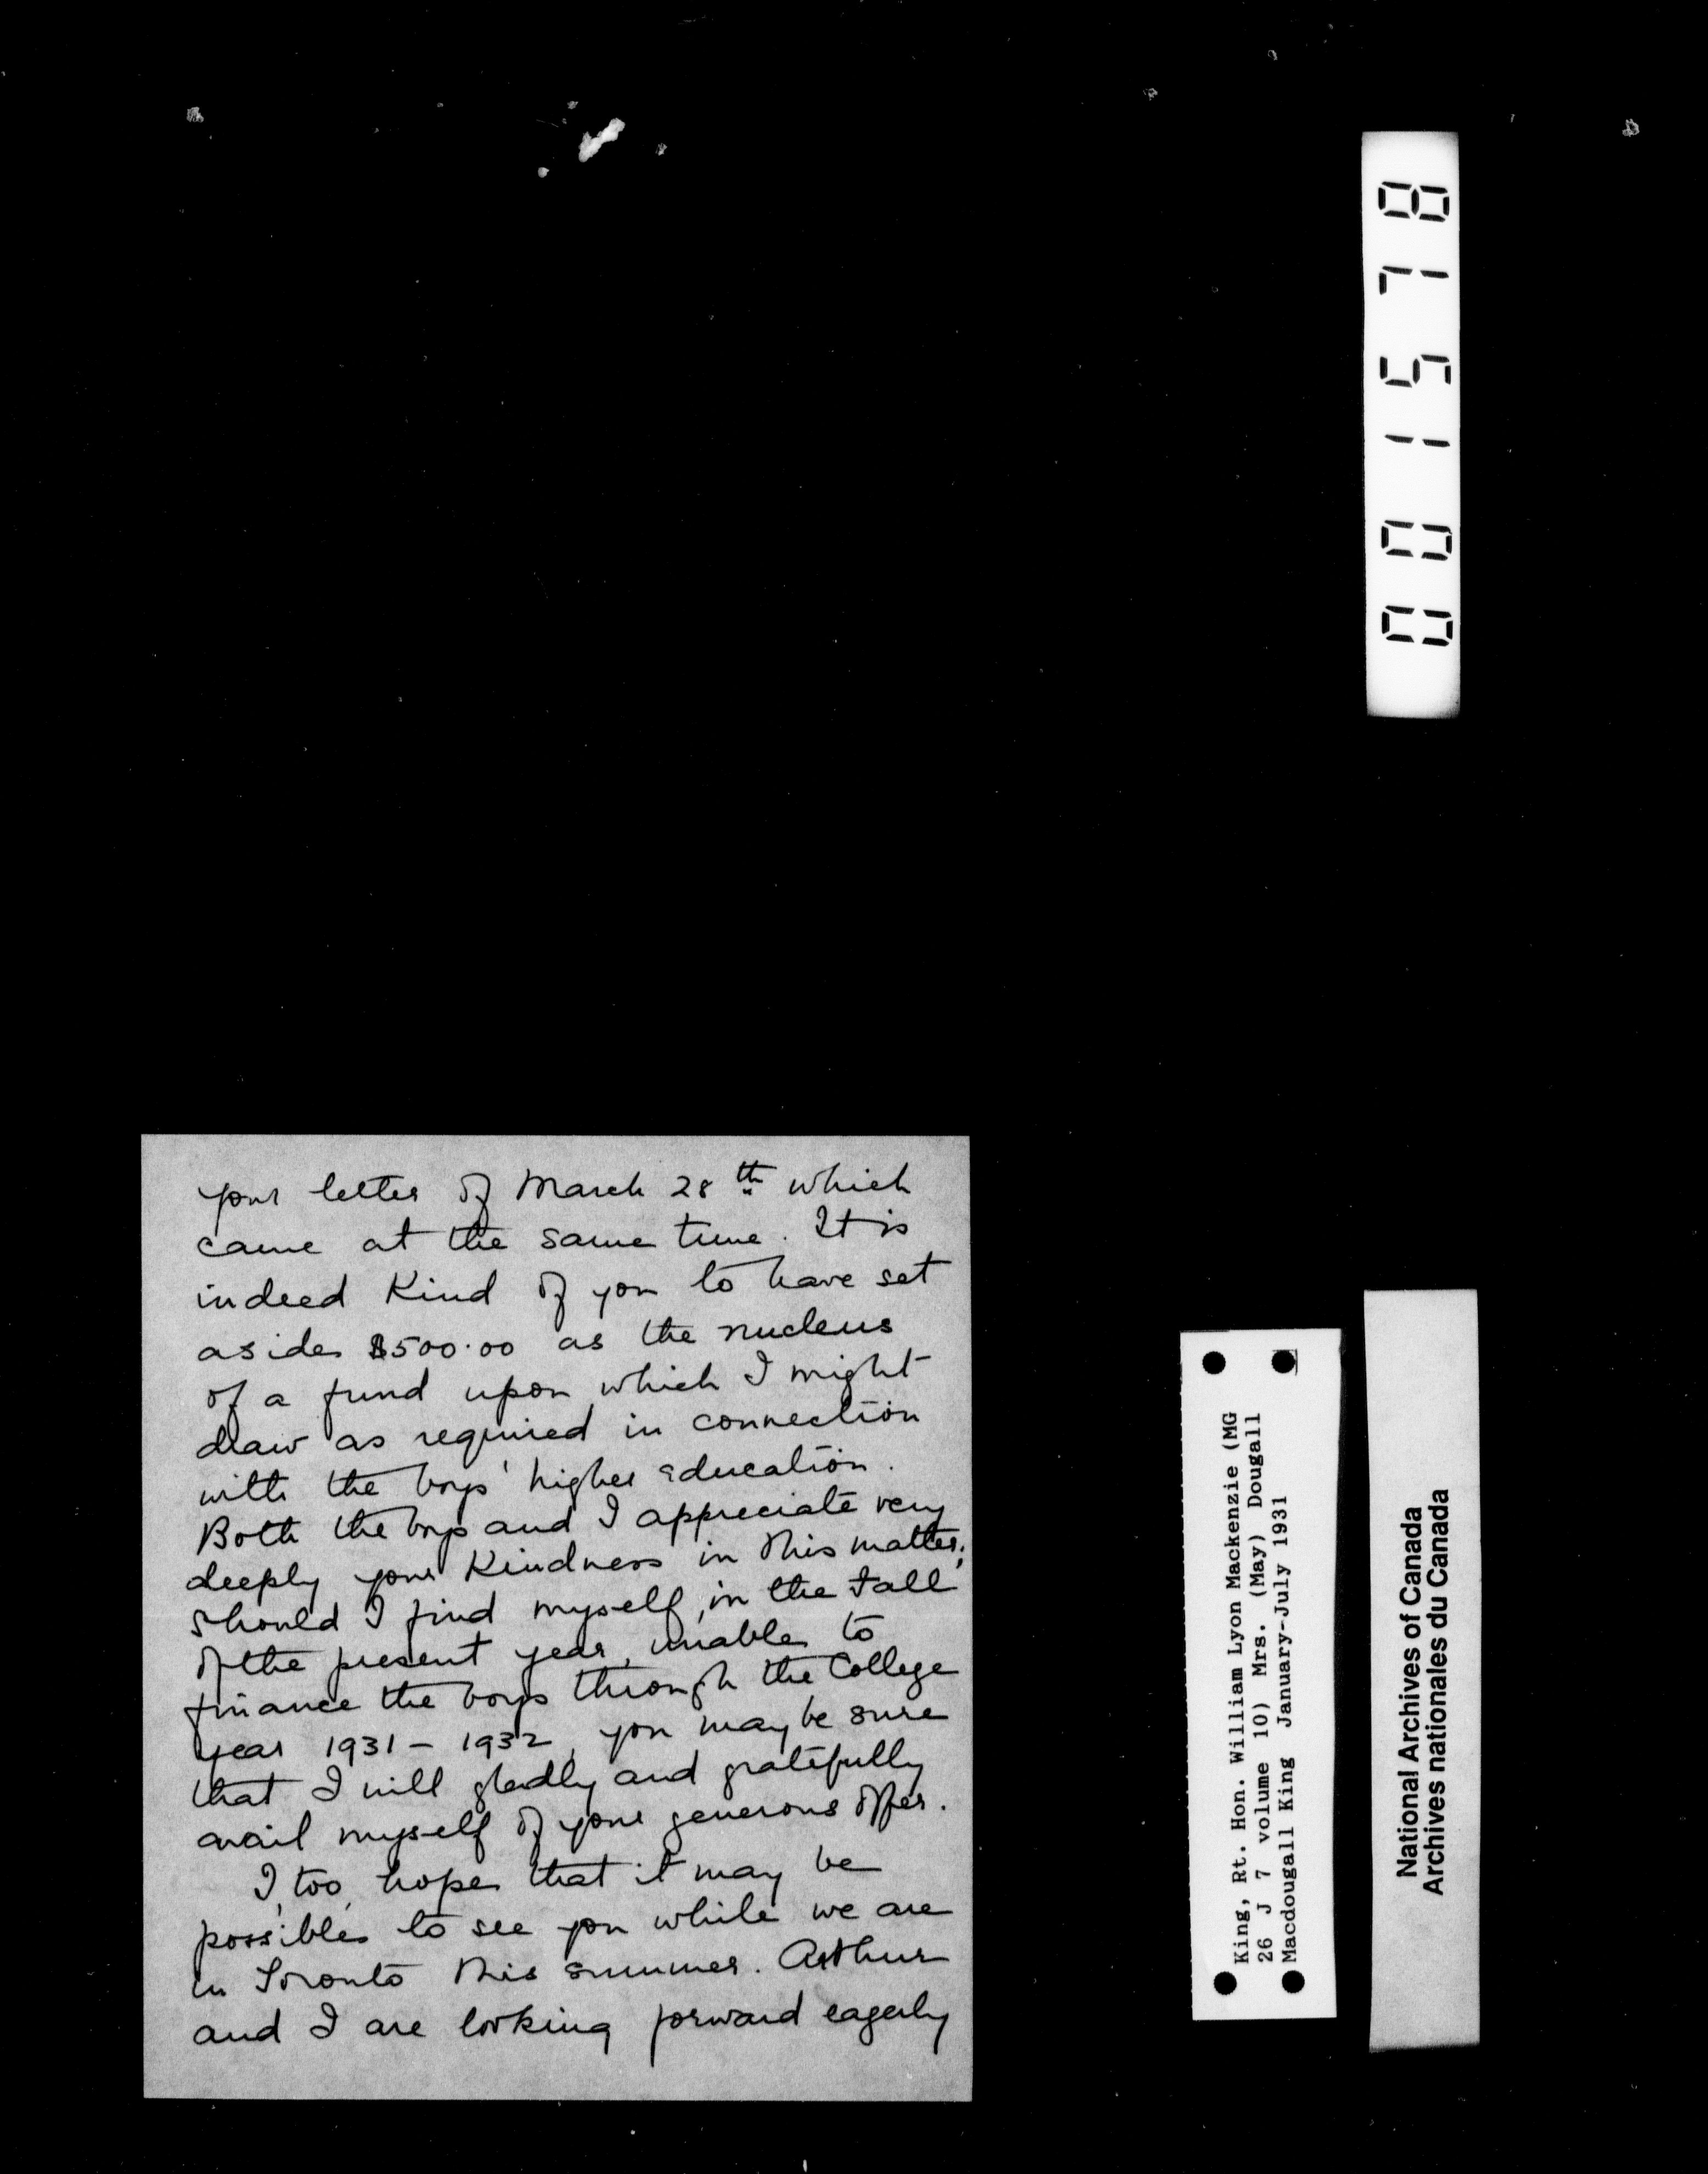 your letter of March 28th which
came at the same time. It is
indeed kind of you to have set
aside $500.00 as the nucleus
of a fund upon which I might
draw as required in connection
with the boys' higher education.
Both the boys and I appreciate very
deeply your kindness in this matter;
should I find myself, in the fall
of the present year, unable to
finance the boys through the College
year 1931 - 1932, you may be sure
that I will gladly and gratefully
avail myself of your generous offer.
I, too, hope that it may be
possible to see you while we are
in Toronto this summer. Arthur
and I are looking forward eagerly
King, Rt. Hon. William Lyon Mackenzie (MG
26 J 7 volume 10) Mrs. (May) Dougall
Macdougall King January-July 1931
National Archives of Canada
Archives nationales du Canada
001578